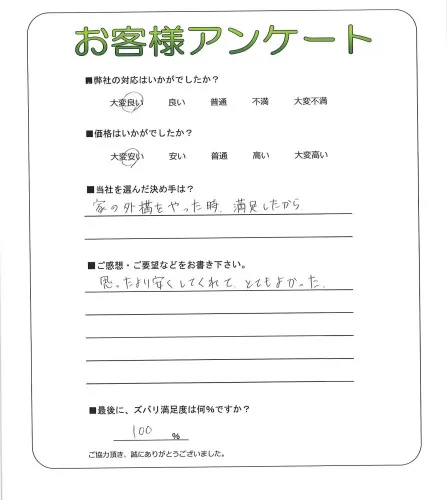 お客様アンケート
■弊社の対応はいかがでしたか？
大変良い 良い 普通 不満 大変不満
■価格はいかがでしたか？
大変安い 安い 普通 高い 大変高い
■当社を選んだ決め手は？
家の外構をやった時、満足したから
■ご感想・ご要望などをお書き下さい。
思ったより安くしてくれて、とてもよかった。
■最後に、ズバリ満足度は何％ですか？
100 ％
ご協力頂き、誠にありがとうございました。